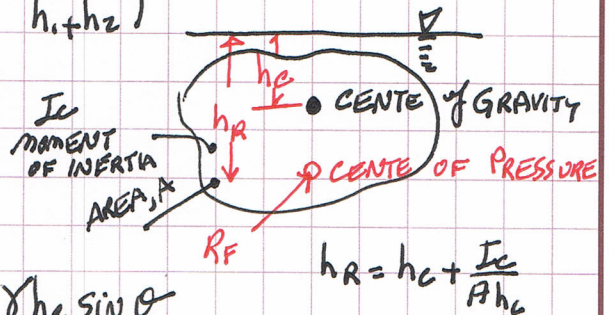 h₁+h₂)
hc
CENTE of GRAVITY
Ic
MOMENT
OF INERTIA
hR
CENTE OF PRESSURE
AREA, A
RF
hR = hc + Ic/Ahc
γhc sin θ